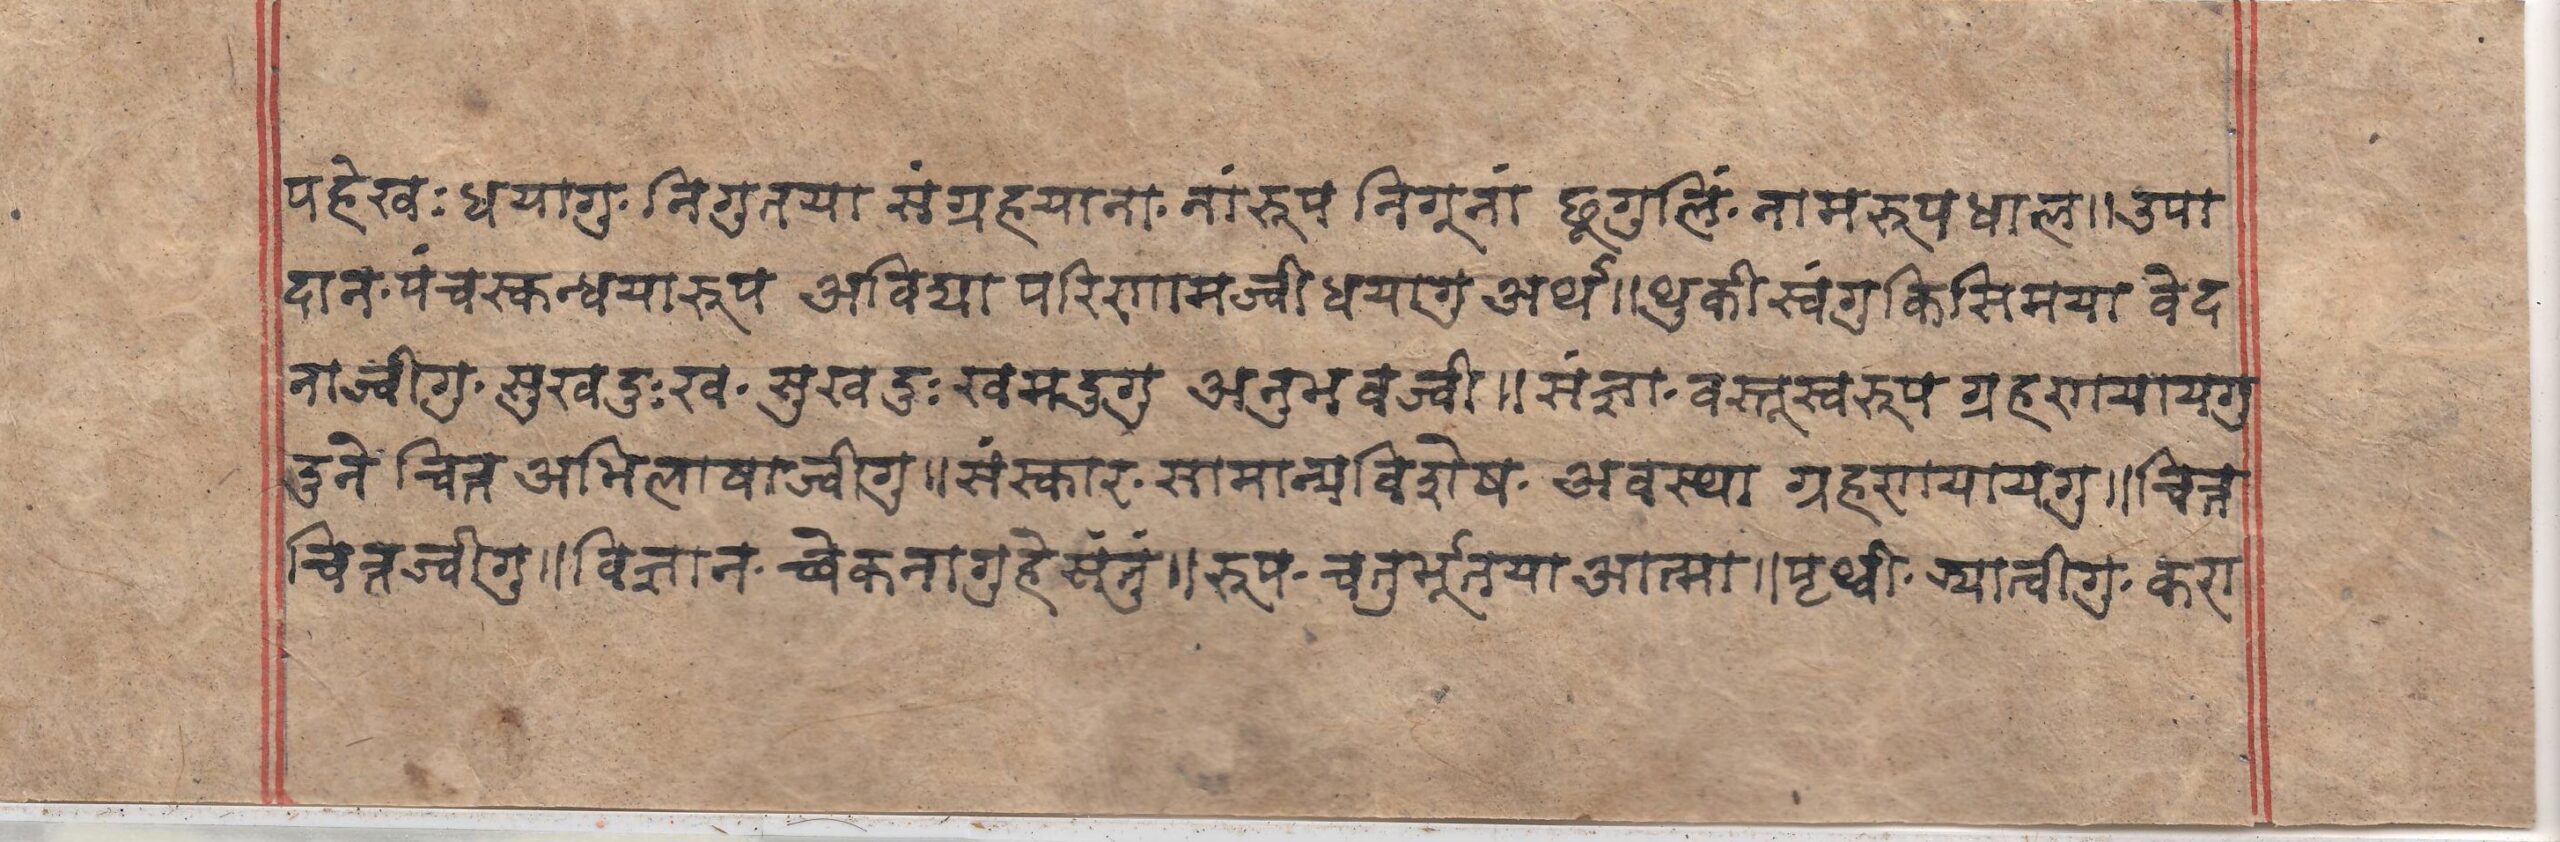 पहेखः धयागु· निगुतया संग्रहयाना· नांरूप निगूनां छूगुलिं· नामरूप धाल॥ उपा
दान· पंचस्कन्धयारूप अविद्या परिणामज्वी धयागु अर्थ॥ थुकीस्वंगु किसिमया वेद
नाज्वीगु· सुखदुःख· सुखदुःखमदुगु अनुभवज्वी॥ संज्ञा· वस्तूस्वरूप ग्रहणयायगु
दुने चित्त अभिलाषाज्वीगु॥ संस्कार· सामान्यविशेष· अवस्था ग्रहणयायगु॥ चित्त
चित्तज्वीगु॥ विज्ञान· च्वेकनागु हे खंतुं॥ रूप· चतुर्भूतया आत्मा॥ पृथ्वी· ज्यात्वीगु· करा